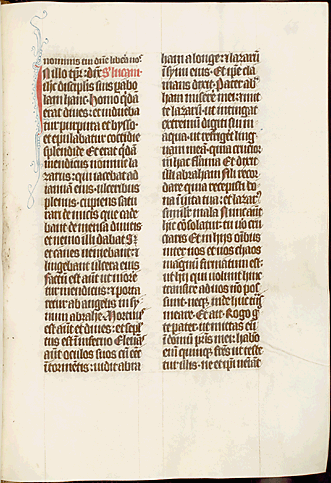 nominis tui que libera nos
In illo tpr: dix S lucam
ihc discipulis suis pabo
lam hanc. Homo qdā
erat dives: et induebat
tur purpura et bysso.
et epulabatur cotidie
splendide. Et erat qdā
mendicus nomine la
zarus: qui iacebat ad
ianuā eius. ulceribus
plenus. cupiens satu
rari de micis que cade
bant de mensa divitis
et nemo illi dabat. S;
et canes veniebant: et
lingebant ulcera eius.
factū est aut ut more
retur mendicus: et porta
retur ab angelis in sy
num abrahe. Mortuus
est aūt et dives: et sepult
us est in inferno. Eleuās
aūt oculos suos cū eēt
in tormētis: vidit abra
ham a longe: et lazarū
in synu eius. Et ipe cla
mans dixit. Pater ab
ham miserē mei: et mit
te lazarū. ut intingat
extremū digiti sui in
aqua. ut refriget ling
uam meā. quia crucior
in hac flama. Et dixit
illi abraham. Fili recor
dare quia recepisti bo
na in vita tua: et lazar9
similit mala. Nunc aūt
hic cōsolatur: tu vō cru
ciaris. Et in hijs oībus
inter nos et vos chaos
magnū firmatum est:
ut hij qui volunt hinc
transire ad vos nō pos
sunt. neq; inde huc trās
meare. Et ait. Rogo g
te pater. ut mittas eū
in domū prīs mei: habo
enī quinq; frēs. ut teste
tur illis. ne et ipi veniāt